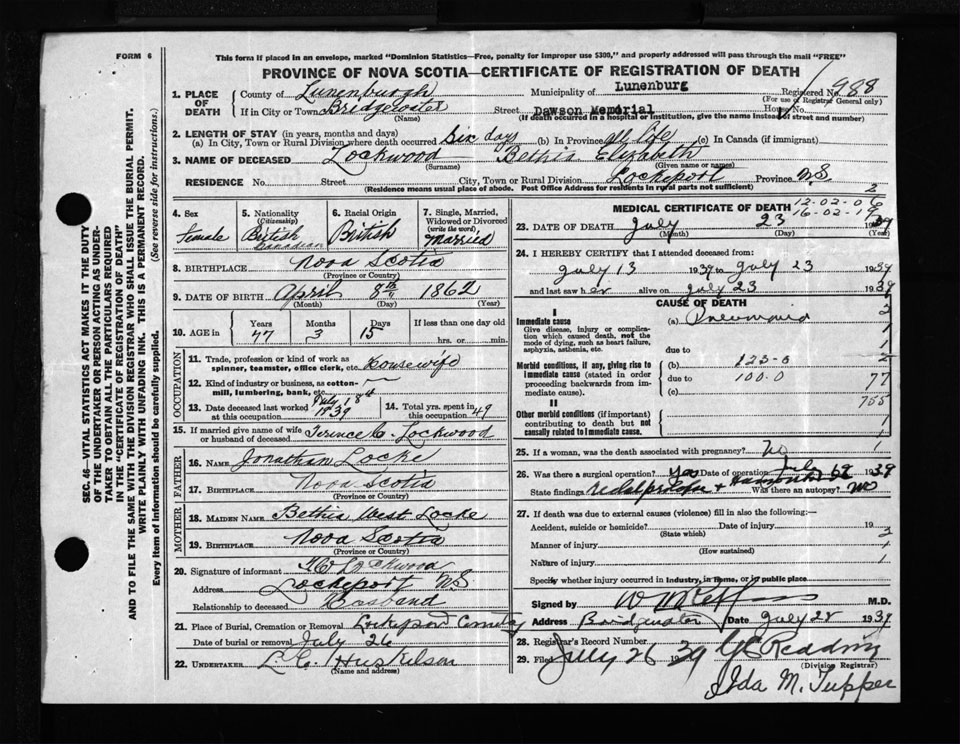 FORM 6
This form if placed in an envelope, marked "Dominion Statistics—Free, penalty for improper use $300," and properly addressed will pass through the mail "FREE"
PROVINCE OF NOVA SCOTIA—CERTIFICATE OF REGISTRATION OF DEATH
1. PLACE OF DEATH
County of Lunenburgh Municipality of Lunenburg Registered No. 988
(For use of Registrar General only)
If in City or Town Bridgewater Street Dawson Memorial House No.
(Name) (If death occurred in a hospital or institution, give the name instead of street and number)
2. LENGTH OF STAY (in years, months and days)
(a) In City, Town or Rural Division where death occurred Six days (b) In Province all life (c) In Canada (if immigrant)
3. NAME OF DECEASED Lockwood Bethia Elizabeth
(Surname) (Given name or names)
RESIDENCE No. Street City, Town or Rural Division Lockeport Province N.S.
(Residence means usual place of abode. Post Office Address for residents in rural parts not sufficient)
4. Sex female
5. Nationality (Citizenship) British Canadian
6. Racial Origin British
7. Single, Married, Widowed or Divorced (write the word) Married
8. BIRTHPLACE Nova Scotia
(Province or Country)
9. DATE OF BIRTH April 8th 1862
(Month) (Day) (Year)
10. AGE in Years Months Days If less than one day old
77 3 15 hrs. or min.
OCCUPATION
11. Trade, profession or kind of work as spinner, teamster, office clerk, etc. Housewife
12. Kind of industry or business, as cotton-mill, lumbering, bank, etc.
13. Date deceased last worked at this occupation July 18th 1939
14. Total yrs. spent in this occupation 49
15. If married give name of wife or husband of deceased Terence C. Lockwood
FATHER
16. Name Jonathan Locke
17. Birthplace Nova Scotia
(Province or Country)
MOTHER
18. Maiden Name Bethia West Locke
19. Birthplace Nova Scotia
(Province or Country)
20. Signature of informant Lockwood
Address Lockeport N.S.
Relationship to deceased Husband
21. Place of Burial, Cremation or Removal Lockeport Cemetery
Date of burial or removal July 26
22. UNDERTAKER L. C. Huskilson
(Name and address)
MEDICAL CERTIFICATE OF DEATH
12-02-06
16-02-19
23. DATE OF DEATH July 23 1939
(Month) (Day) (Year)
24. I HEREBY CERTIFY that I attended deceased from:
July 13 1939 to July 23 1939
and last saw her alive on July 23 1939
CAUSE OF DEATH
I
Immediate cause (a) Pneumonia
Give disease, injury or complication which caused death, not the mode of dying, such as heart failure, asphyxia, asthenia, etc.
due to
Morbid conditions, if any, giving rise to immediate cause (stated in order proceeding backwards from immediate cause).
(b) 123-0
due to 100-0
(c)
II
Other morbid conditions (if important) contributing to death but not causally related to immediate cause.
25. If a woman, was the death associated with pregnancy? No
26. Was there a surgical operation? Yes Date of operation 1939
State findings Was there an autopsy? No
27. If death was due to external causes (violence) fill in also the following:—
Accident, suicide or homicide? Date of injury 19
(State which)
Manner of injury
(How sustained)
Nature of injury
Specify whether injury occurred in industry, in home, or in public place
Signed by M.D.
Address Bridgewater Date July 1939
28. Registrar's Record Number
29. Filed July 26 39 Redding
(Division Registrar)
Ida M. Tupper
SEC. 46—VITAL STATISTICS ACT MAKES IT THE DUTY
OF THE UNDERTAKER OR PERSON ACTING AS UNDER-
TAKER TO OBTAIN ALL THE PARTICULARS REQUIRED
IN THE "CERTIFICATE OF REGISTRATION OF DEATH"
AND TO FILE THE SAME WITH THE DIVISION REGISTRAR WHO SHALL ISSUE THE BURIAL PERMIT.
WRITE PLAINLY WITH UNFADING INK. THIS IS A PERMANENT RECORD.
Every item of information should be carefully supplied. (See reverse side for instructions.)